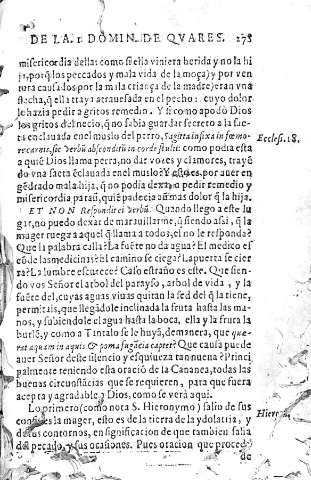 DE LA. 1. DOMIN. DE QVARES. 278
misericordia della: como si ella viniera herida y no la hi
ja, porq̃ los peccados y mala vida de la moça) y por ven
tura causados por la mala criança de la madre) eran vna
saeta, q̃ ella traya atrauesada en el pecho: cuyo dolor
le hazia pedir a gritos remedio. Y si como apodò Dios
los gritos del necio, q̃ no sabia guardar secreto a la sae-
ta enclauada en el muslo del perro, Sagitta infixa in fœmo-
re canis, sic verbũ absconditũ in corde stulti: como podia esta
a quiẽ Dios llama perra, no dar vozes y clamores, traye
do vna saeta ẽclauada en el muslo? Y esto es, por auer en
gẽdrado mala hija, q̃ no podia dexar de pedir remedio y
misericordia para ũ, quiẽ padecia añimas dolor q̃ la hija.
ET NON Respondit ei Verbũ. Quando llego a este lu
gar, no puedo dexar de marauillarme, q̃ siendo assi, q̃ la
muger ruega a aquel q̃ llama a todos, el no le respõda?
Que la palabra calla? La fuẽte no da agua? El medico es
cõde las medicinas? El camino se ciega? La puerta se cier
ra? La lumbre escurece? Caso estraño es este. Que sien-
do vos Señor el arbol del parayso, arbol de vida, y la
fuẽte del, cuyas aguas viuas quitan la sed del q̃ la tiene,
permitais, que llegãdole inclinada la fruta hasta las ma
nos, y subiendole el agua hasta la boca, ella y la fruta la
burlẽ, y como a Tantalo se le huyã, demanera, que quæ-
rat aquam in aquis & poma fugacia captet? Que causa puede
auer Señor deste silencio y esquiueza tan nueua? Princi
palmente teniendo esta oración de la Cananea, todas las
buenas circunstãcias que se requieren, para que fuera
acepta y agradable a Dios, como se verà aqui.
Lo primero (como nota S. Hieronymo) salio de sus
confines la muger, esto es de la tierra de la ydolatria, y
de sus contornos, en significacion de que tambien salia
del pecado, y sus ocasiones. Pues oracion que proced
de
Ecclesi. 18.
Hieron.